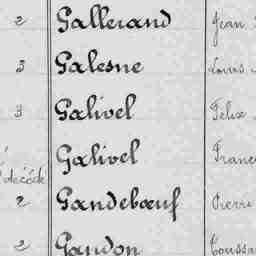 2 Gallerand Jean
3 Galesne Louis
3 Galivel Félix
Galivel Franc
décédé
2 Gandebœuf Pierre
2 Gandon Toussa